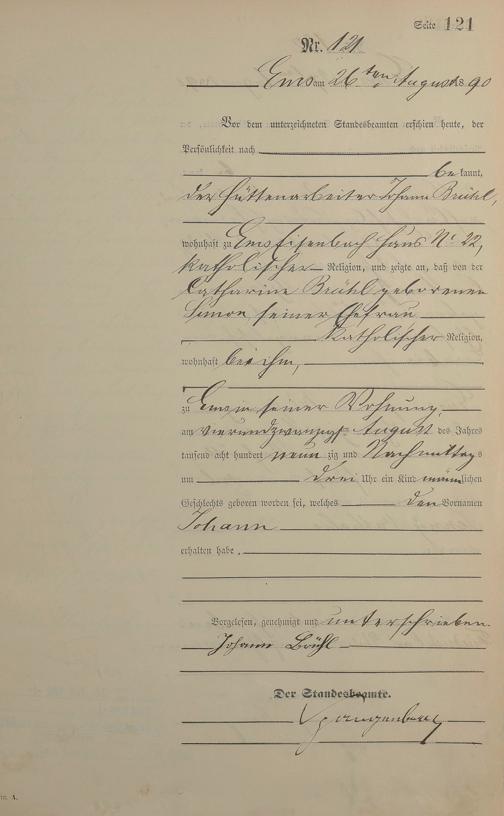 Seite 121
Nr. 121
Ems am 26ten August 1890
Vor dem unterzeichneten Standesbeamten erschien heute, der
Persönlichkeit nach
bekannt,
der Hüttenarbeiter Johann Brühl,
wohnhaft zu Ems Eisenbach Haus No 22,
katholischer Religion, und zeigte an, daß von der
Catharine Brühl geborenen
Simon seiner Ehefrau
katholischer Religion,
wohnhaft bei ihm,
zu Ems in seiner Wohnung,
am vierundzwanzigst August des Jahres
tausend acht hundert neun zig und Nachmittags
um drei Uhr ein Kind männlichen
Geschlechts geboren worden sei, welches den Vornamen
Johann
erhalten habe.
Vorgelesen, genehmigt und unterschrieben.
Johann Brühl
Der Standesbeamte.
Spangenberg
A.